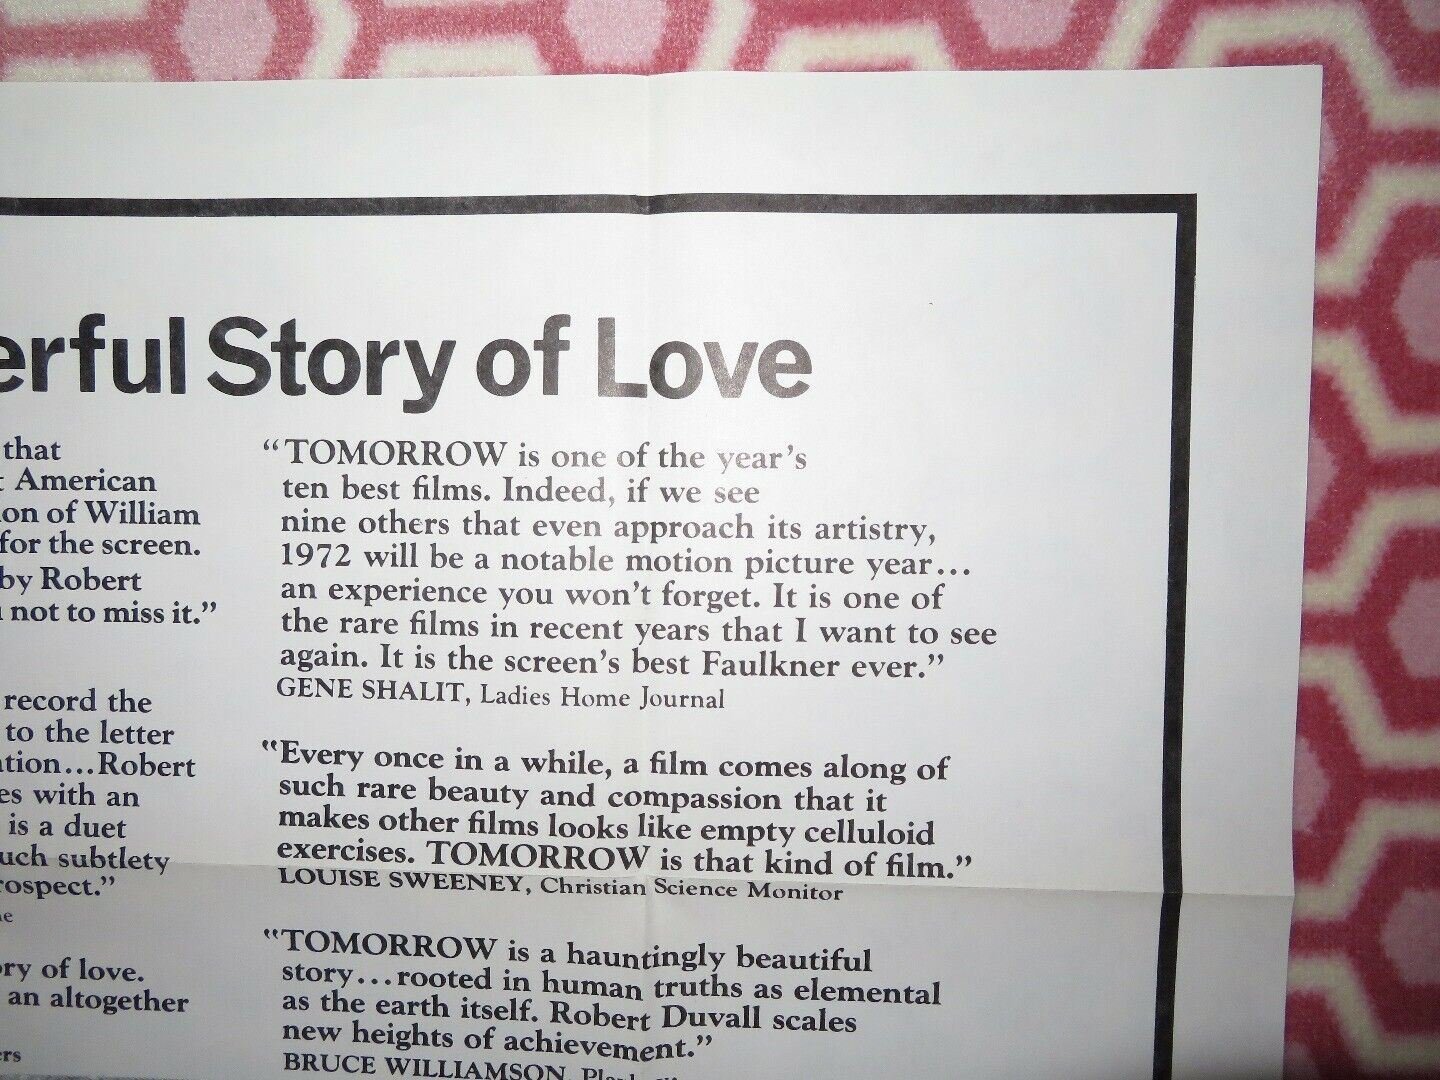 Story of Love
that
American
of William
for the screen.
by Robert
not to miss it.”
record the
to the letter
Robert
with an
is a duet
subtlety
of love.
an altogether
“TOMORROW is one of the year’s
ten best films. Indeed, if we see
nine others that even approach its artistry,
1972 will be a notable motion picture year...
an experience you won’t forget. It is one of
the rare films in recent years that I want to see
again. It is the screen’s best Faulkner ever.”
GENE SHALIT, Ladies Home Journal
“Every once in a while, a film comes along of
such rare beauty and compassion that it
makes other films looks like empty celluloid
exercises. TOMORROW is that kind of film.”
LOUISE SWEENEY, Christian Science Monitor
“TOMORROW is a hauntingly beautiful
story...rooted in human truths as elemental
as the earth itself. Robert Duvall scales
new heights of achievement.”
BRUCE WILLIAMSON,